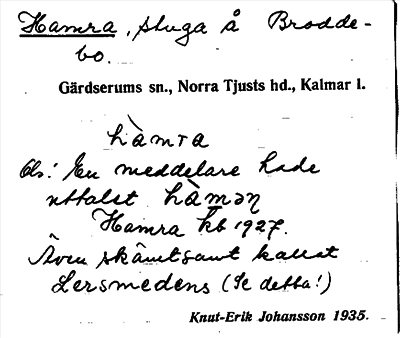 Hamra, stuga å Brodde-
bo.
Gärdserums sn., Norra Tjusts hd., Kalmar l.
hàmra
Obs! En meddelare hade
uttalet hàmən
Hamra kb 1927.
Även skämtsamt kallat
Lersmedens (Se detta!)
Knut-Erik Johansson 1935.